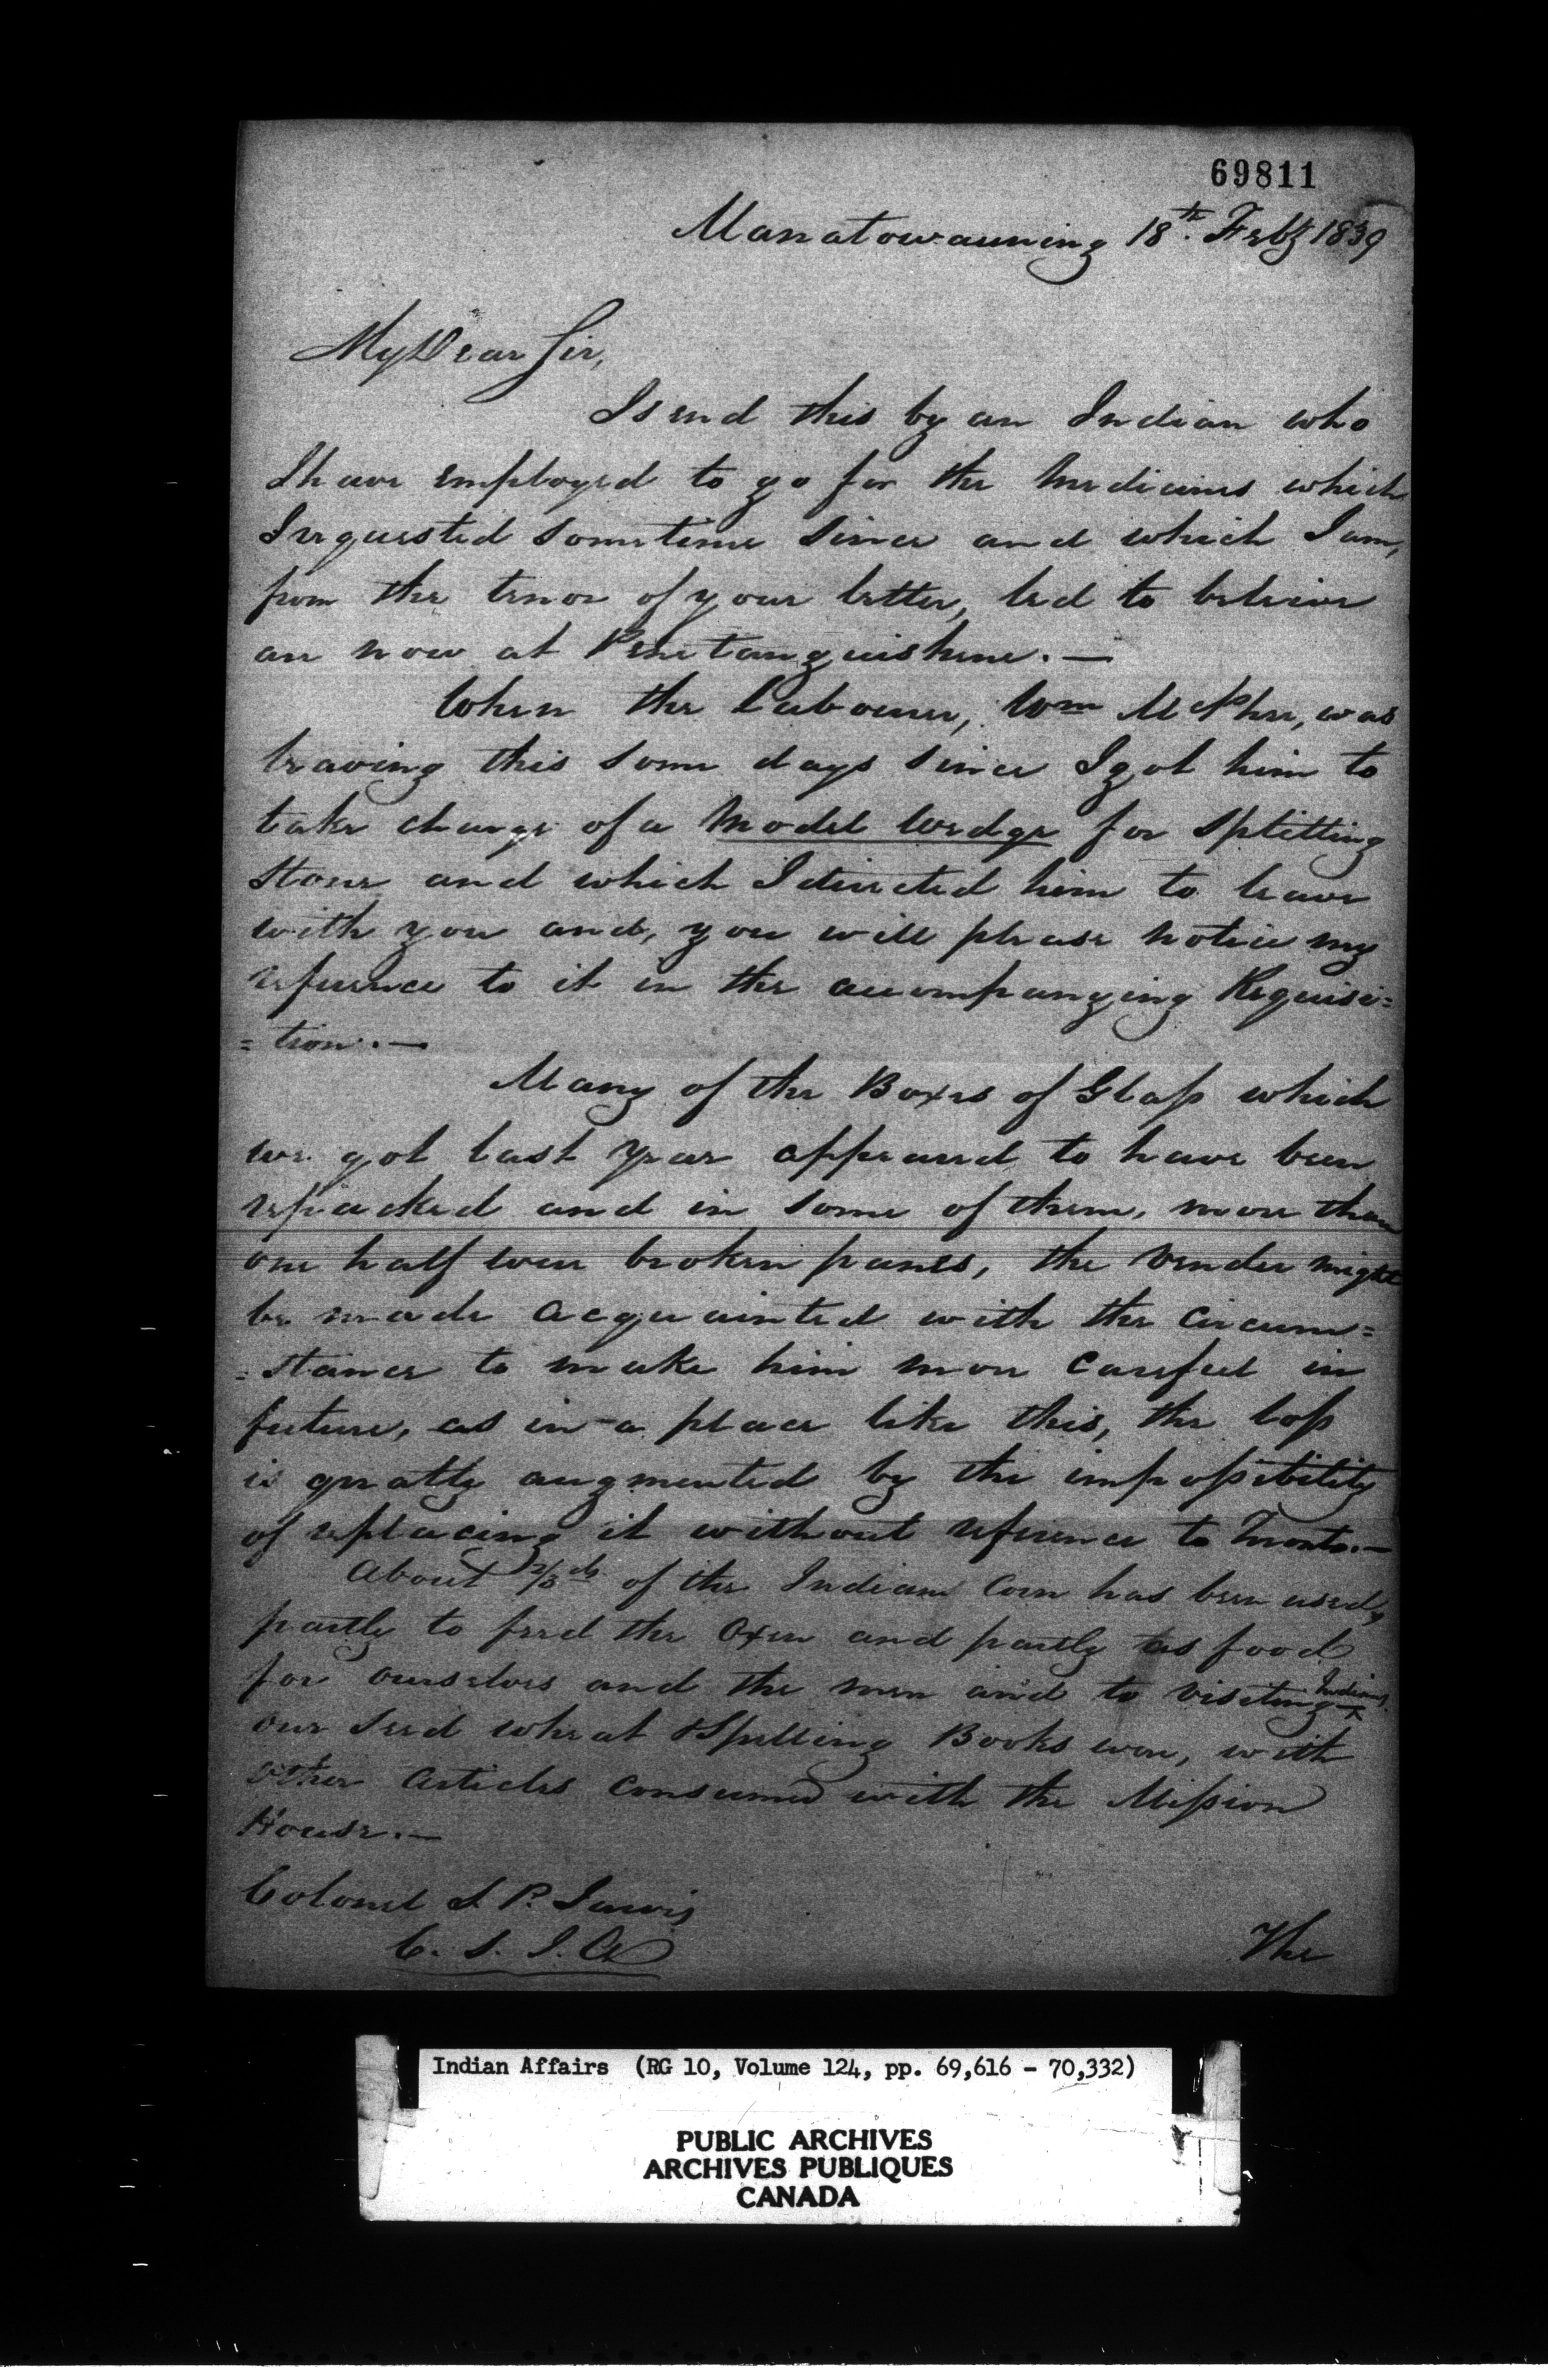 69811
Manatowauning 18th. Feby 1839
My Dear Sir,
I send this by an Indian who
I have employed to go for the Medicines which
I requested sometime since and which I am,
from the tenor of your letter, led to believe
are now at Penetanguishene. —
When the Labourer, Wm McPhee, was
leaving this some days since I got him to
take charge of a Model Wedge for Splitting
Stone and which I directed him to leave
with you and, you will please notice my
reference to it in the accompanying Requisi=
=tion. —
Many of the Boxes of Glass which
we got last year appeared to have been
repacked and in some of them, more than
one half were broken panes, the vender might
be made acquainted with the circum=
=stance to make him more careful in
future, as in a place like this, the loss
is greatly augmented by the impossibility
of replacing it without reference to Toronto. —
About 2/3ds of the Indian Corn has been used,
partly to feed the Oxen and partly as food
for ourselves and the men and to visiting Indians
our Seed wheat & Spelling Books were, with
other articles consumed with the Mission
House. —
Colonel S. P. Jarvis
C. S. I. A
The
Indian Affairs (RG 10, Volume 124, pp. 69,616 - 70,332)
PUBLIC ARCHIVES
ARCHIVES PUBLIQUES
CANADA